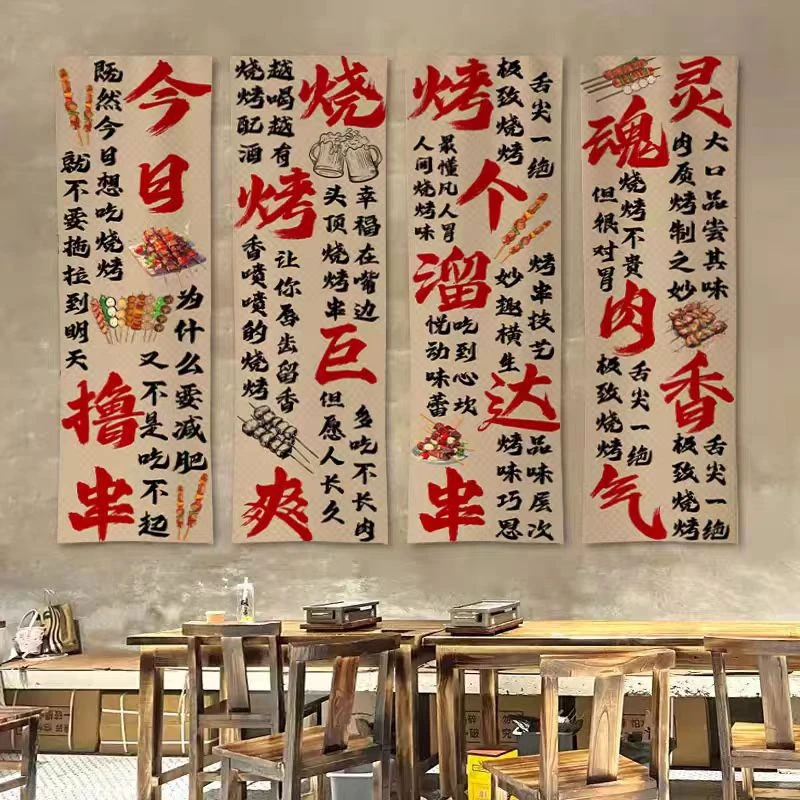 今日撸串
既然今日想吃烧烤
就不要拖拉到明天
为什么要减肥
又不是吃不起
烧烤巨爽
越喝越有
烧烤配酒
幸福在嘴边
头顶烧烤串
让你唇齿留香
香喷喷的烧烤
多吃不长肉
但愿人长久
烤个溜达串
舌尖一绝
极致烧烤
最懂凡人胃
人间烧烤味
烤串技艺
妙趣横生
吃到心坎
悦动味蕾
品味层次
烤味巧思
灵魂肉香气
大口品尝其味
肉质烤制之妙
烧烤不贵
但很对胃
舌尖一绝
极致烧烤
舌尖一绝
极致烧烤